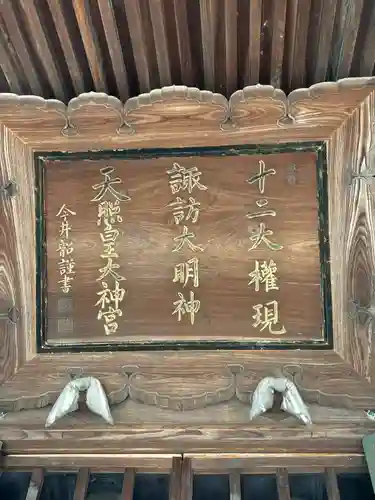 十二大權現
諏訪大明神
天照皇大神宮
今井韶謹書